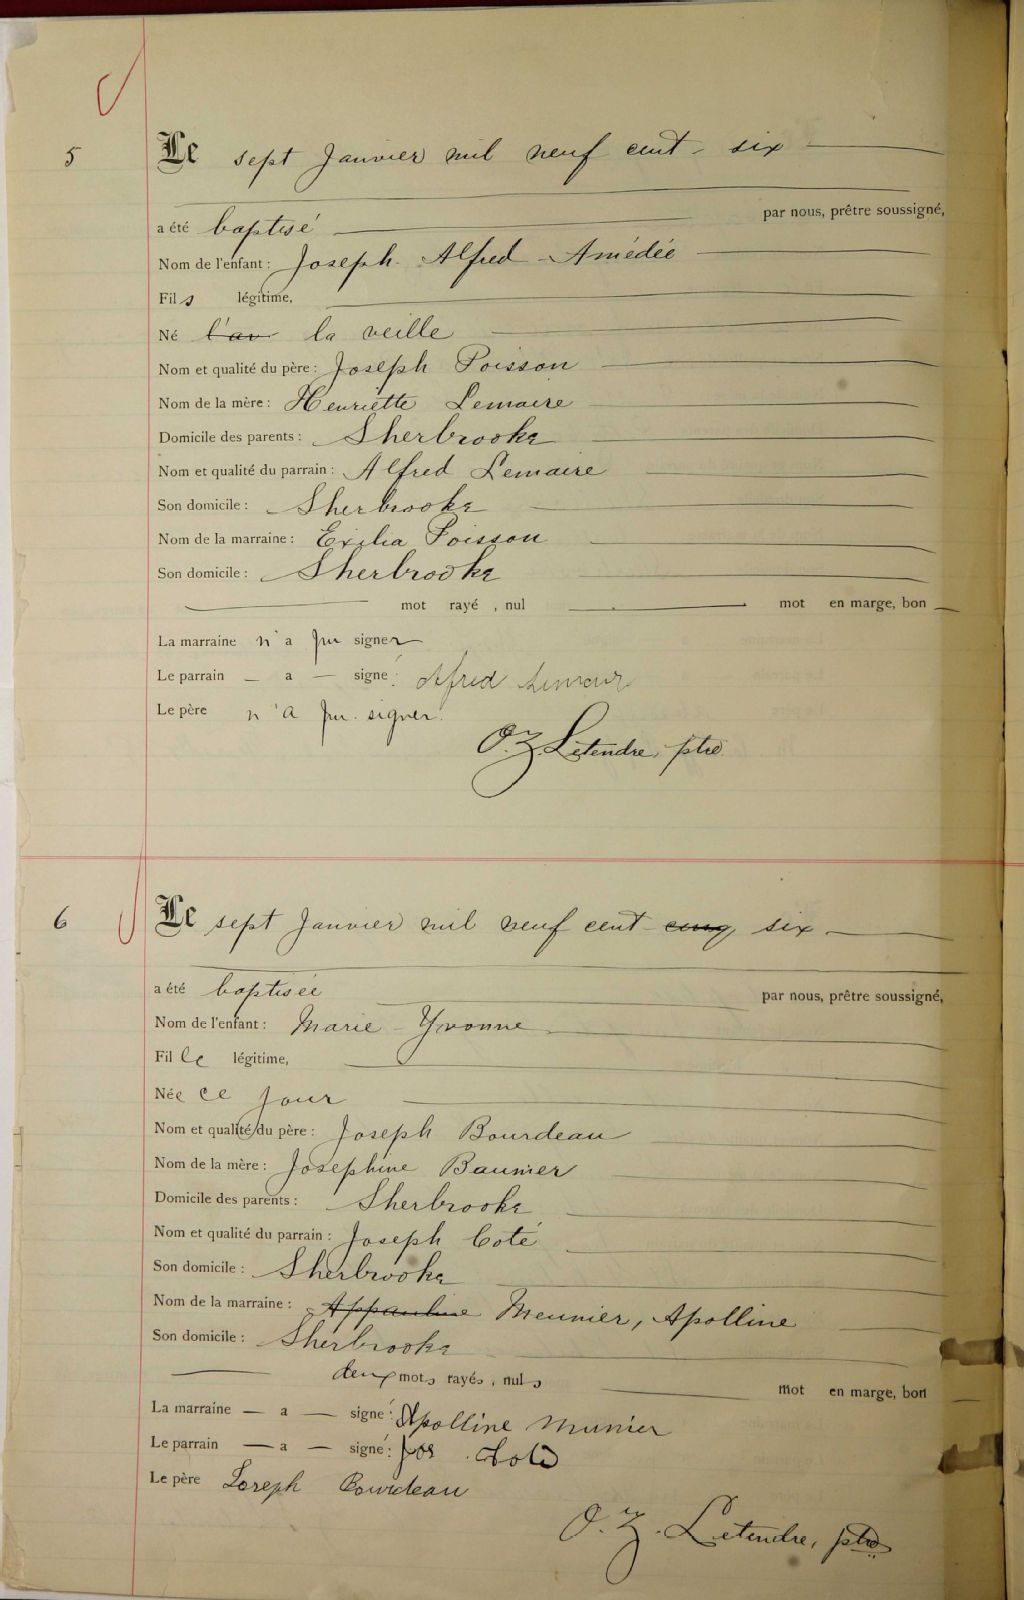 5
Le sept Janvier mil neuf cent six
par nous, prêtre soussigné,
a été baptisé
Nom de l'enfant: Joseph Alfred Amédée
Fils légitime,
Né l'av la veille
Nom et qualité du père: Joseph Poisson
Nom de la mère: Henriette Lemaire
Domicile des parents: Sherbrooke
Nom et qualité du parrain: Alfred Lemaire
Son domicile: Sherbrooke
Nom de la marraine: Exilia Poisson
Son domicile: Sherbrooke
mot rayé, nul mot en marge, bon
La marraine n'a pu signer
Le parrain a signé: Alfred
Le père n'a pu signer.
O. Z. Letendre, ptre
6
Le sept Janvier mil neuf cent cinq six
a été baptisée
par nous, prêtre soussigné,
Nom de l'enfant: Marie Yvonne
Fille légitime,
Née ce jour
Nom et qualité du père: Joseph Bourdeau
Nom de la mère: Josephine Baumier
Domicile des parents: Sherbrooke
Nom et qualité du parrain: Joseph Coté
Son domicile: Sherbrooke
Nom de la marraine: Appauline Meunier, Apolline
Son domicile: Sherbrooke
deux mots rayés, nuls mot en marge, bon
La marraine a signé: Apolline Munier
Le parrain a signé: Jos Coté
Le père Joseph Bourdeau
O. Z. Letendre, ptre